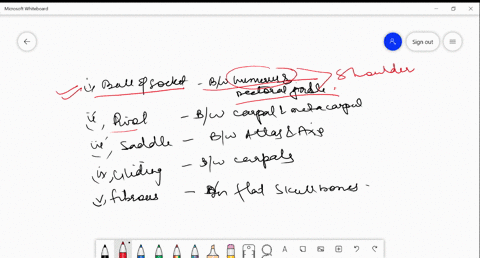 Microsoft Whiteboard
Sign out
i, Ball & socket - B/w humerus &
pectoral girdle. Shoulder
ii, Pivot - B/w carpal & metacarpal
iii, Saddle - B/w Atlas & Axis
iv, Gliding - B/w carpals
v, fibrous - B/w flat skull bones.